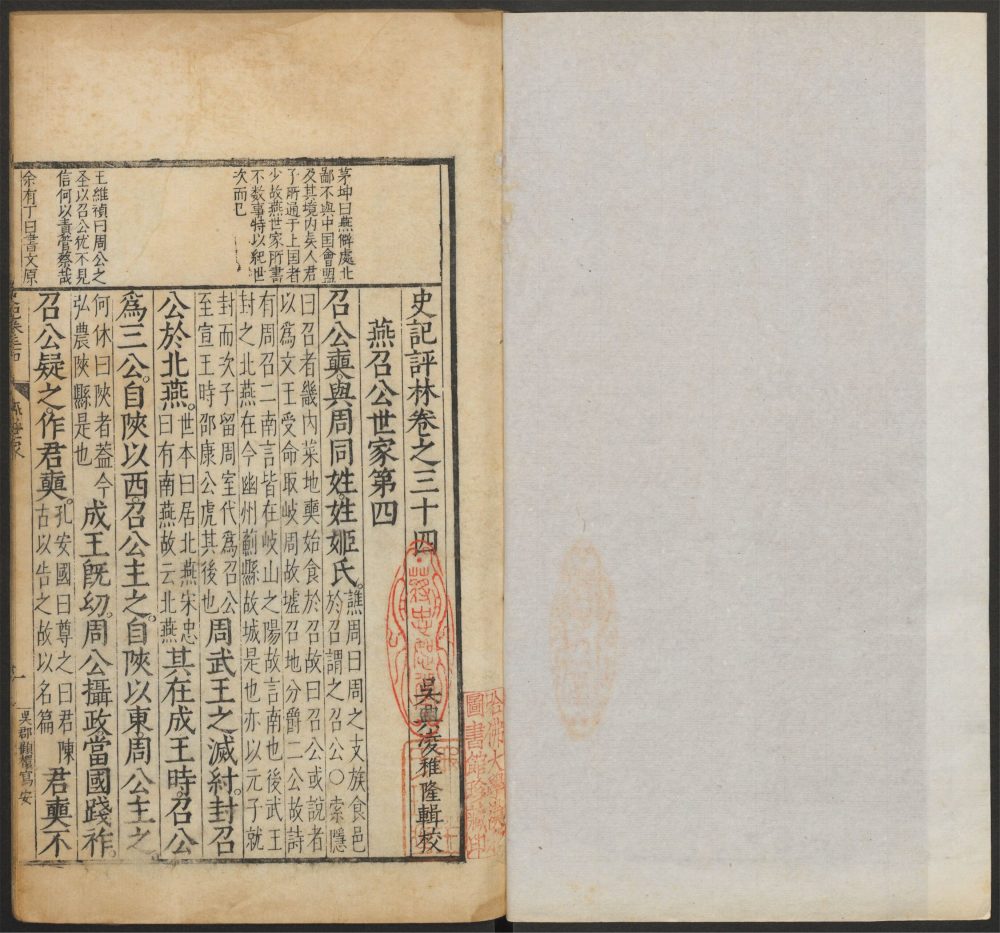 史記評林卷之三十四
吳興凌稚隆輯校
燕召公世家第四
召公奭與周同姓姓姬氏。譙周曰周之支族食邑
於召謂之召公○索隱
曰召者畿内菜地奭始食於召故曰召公或說者
以爲文王受命取岐周故墟召地分爵二公故詩
有周召二南言皆在岐山之陽故言南也後武王
封之北燕在今幽州薊縣故城是也亦以元子就
封而次子留周室代爲召公
至宣王時邵康公虎其後也
周武王之滅紂封召
公於北燕。世本曰居北燕宋忠
曰有南燕故云北燕
其在成王時召公
爲三公。自陝以西。召公主之。自陝以東。周公主之。
何休曰陝者葢今
弘農陝縣是也
成王旣幼。周公攝政當國踐祚。
召公疑之。作君奭。孔安國曰尊之曰君陳
古以告之故以名篇
君奭不
茅坤曰燕僻處北
鄙不與中国會盟
及其境内矣人君
了所通于上国者
少故燕世家所書
不数事特以紀世
次而已
王維禎曰周公之
圣以召公犹不見
信何以責管蔡哉
余有丁曰書文原
吳郡顧櫰寫
哈佛大學
圖書館珍藏印